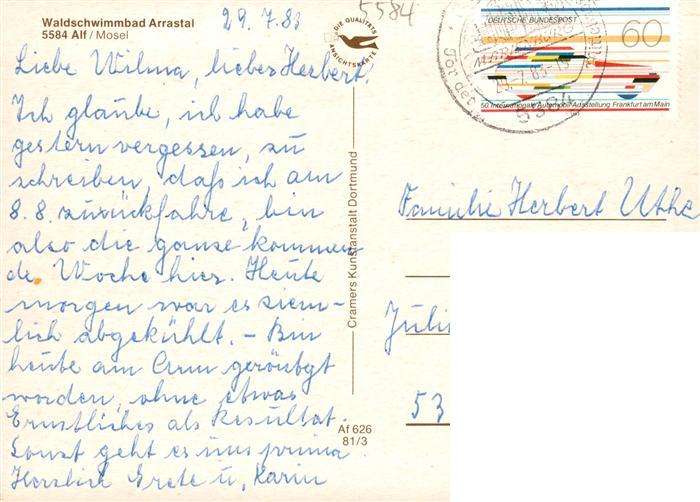 Waldschwimmbad Arrastal
5584 Alf / Mosel
29.7.83
5584
DIE QUALITÄTS
ANSICHTSKARTE
DEUTSCHE BUNDESPOST
60
50. Internationale Automobil-Ausstellung Frankfurt am Main
5584
Liebe Wilma, lieber Herbert,
Ich glaube, ich habe
gestern vergessen, zu
schreiben, daß ich am
8.8. zurückfahre, bin
also die ganze kommen
de Woche hier. Heute
morgen war es ziem-
lich abgekühlt. – Bin
heute am Arm geröntgt
worden, ohne etwas
Ernstliches als Resultat.
Sonst geht es uns prima
Herzlich Grete u. Karin
Cramers Kunstanstalt Dortmund
Af 626
81/3
Familie Herbert
53